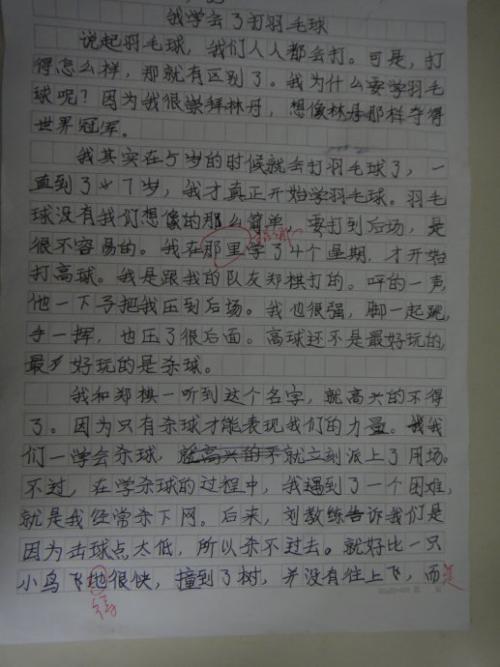 我学会了打羽毛球
说起羽毛球，我们人人都会打。可是，打
得怎么样，那就有区别了。我为什么要学羽毛
球呢？因为我很崇拜林丹，想像林丹那样夺得
世界冠军。
我其实在5岁的时候就会打羽毛球了，一
直到了 7岁，我才真正开始学羽毛球。羽毛
球没有我们想像的那么简单，要打到后场，是
很不容易的。我在那里学了4个星期，才开始
打高球。我是跟我的队友郑棋打的。呯的一声
他一下子把我压到后场。我也很强，脚一起跳，
手一挥，也压了很后面。高球还不是最好玩的，
最好玩的是杀球。
我和郑棋一听到这个名字，就高兴的不得
了。因为只有杀球才能表现我们的力量。我
们一学会杀球，就高兴的不就立刻派上了用场。
不过，在学杀球的过程中，我遇到了一个困难，
就是我经常杀下网。后来，刘教练告诉我们是
因为击球点太低，所以杀不过去。就好比一只
小鸟飞地很快，撞到了树，并没有往上飞，而是